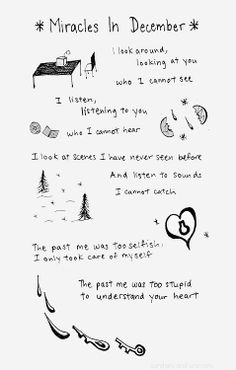 * Miracles In December *
I look around,
looking at you
who I cannot see
I listen,
listening to you
who I cannot hear
I look at scenes I have never seen before
And listen to sounds
I cannot catch
The past me was too selfish,
I only took care of myself
The past me was too stupid
to understand your heart